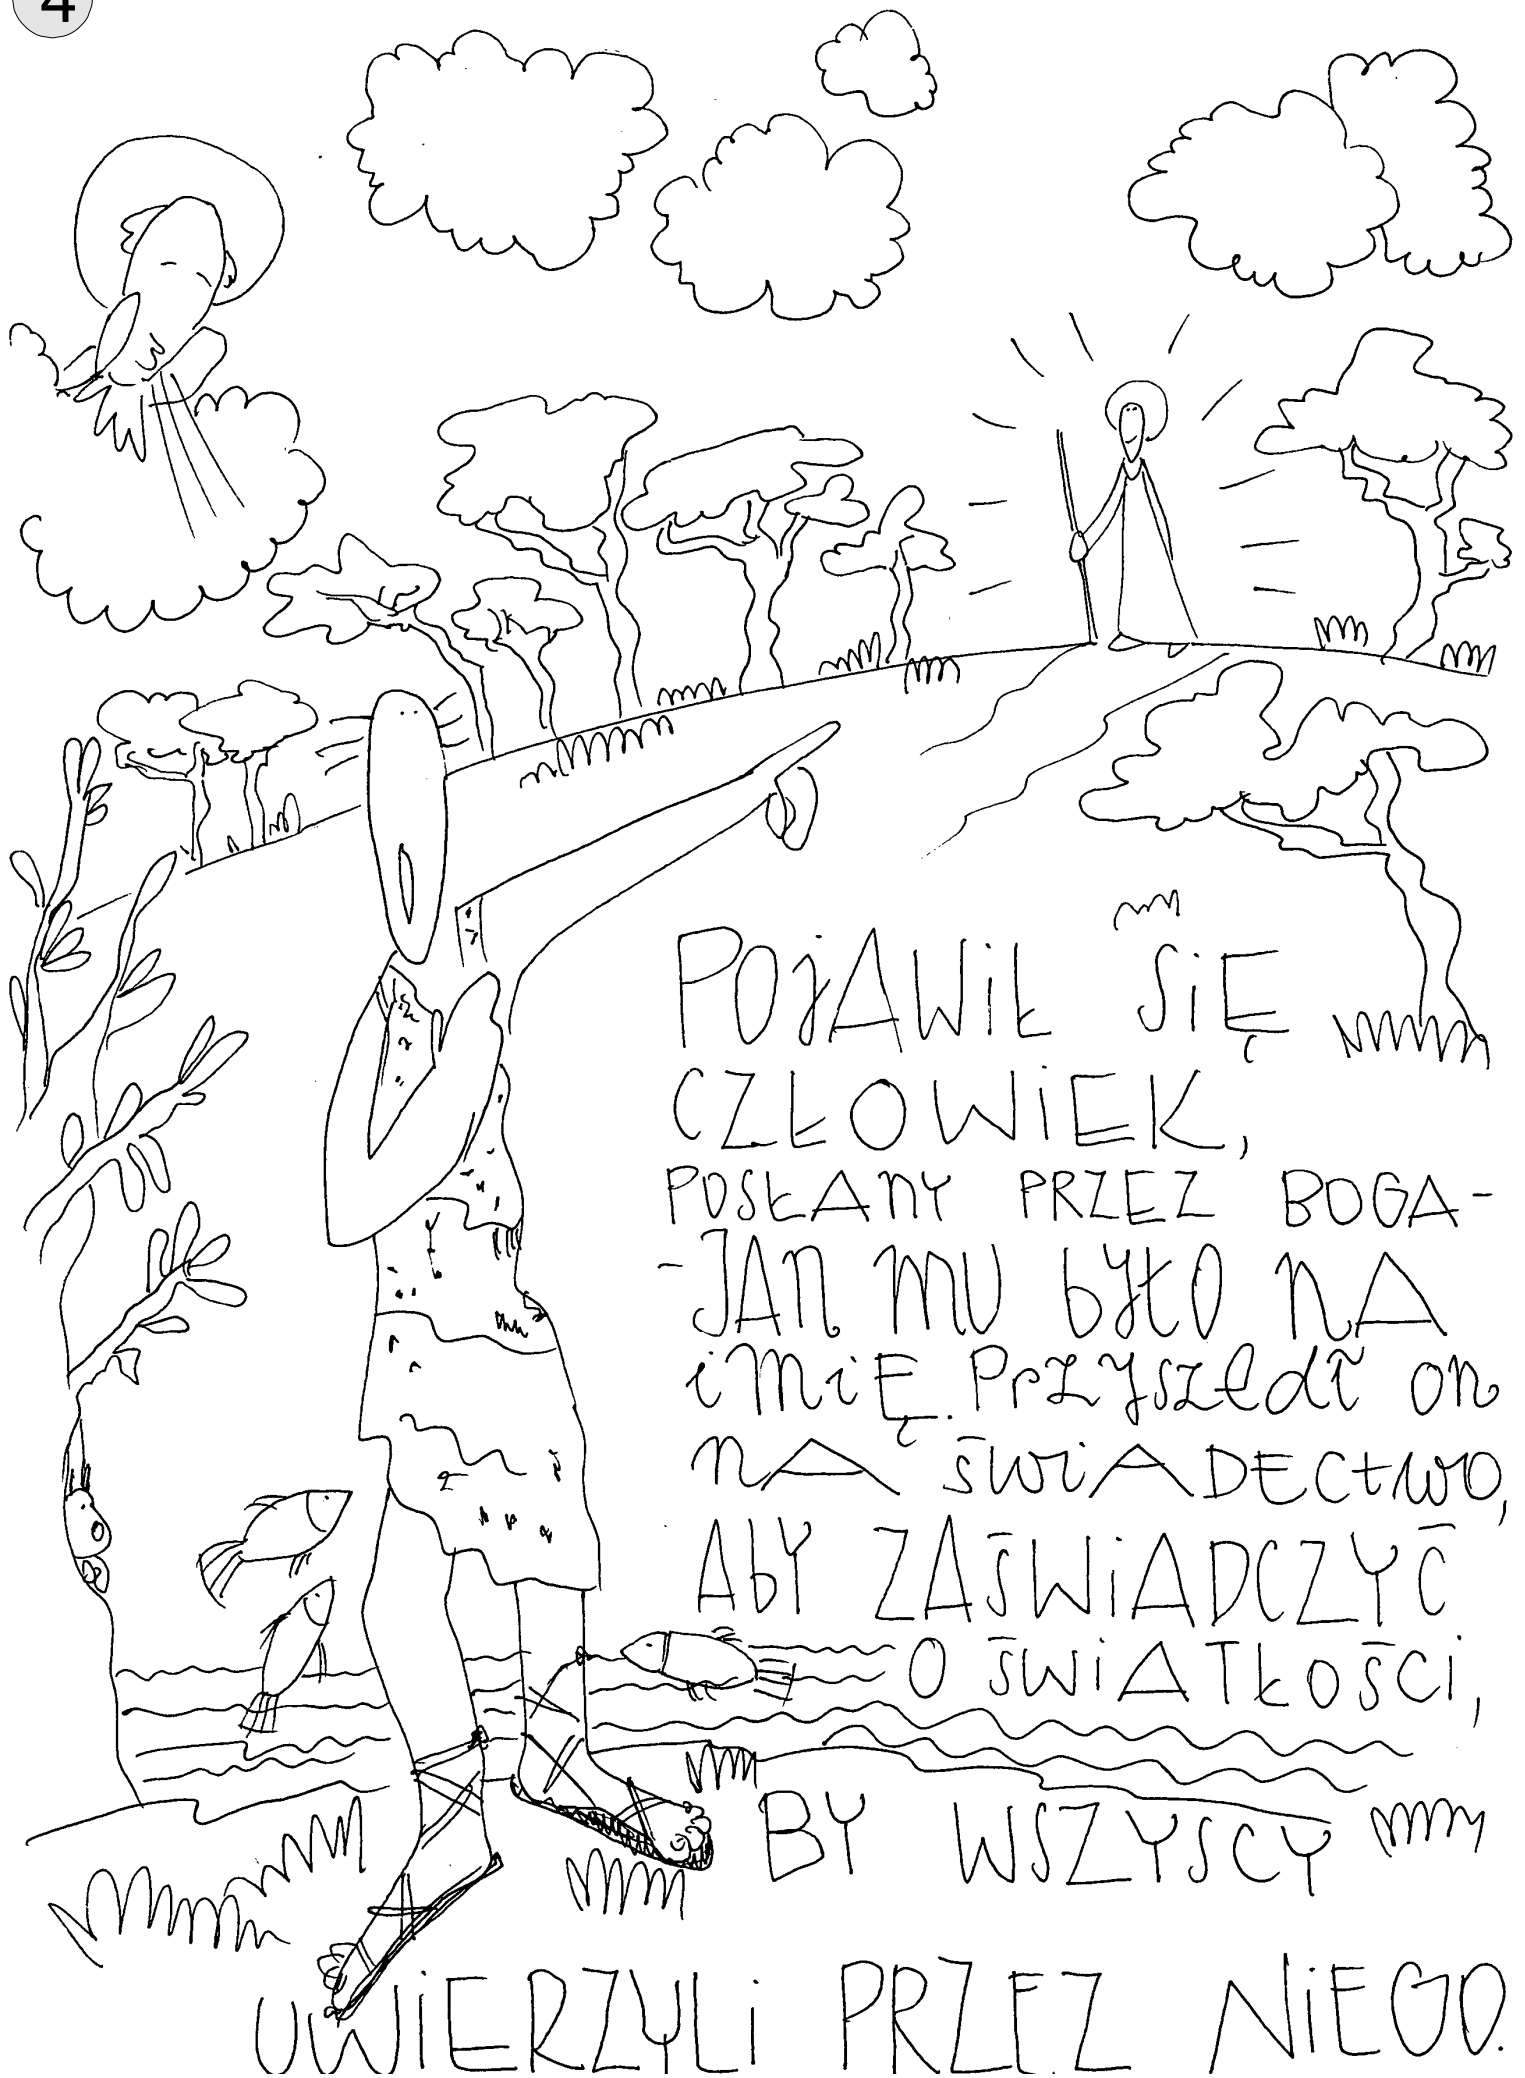 4
POjAWiŁ SiĘ
CZŁOWiEK,
POSŁAnY PRZEZ BOGA-
-JAn MU bYŁO nA
imiĘ. PrzYszedł on
nA świADECtwo,
AbY ZAŚWiADCZYĆ
O ŚWiATŁOŚCi,
BY WSZYSCY
UWiERZYLi PRZEZ NiEGO.